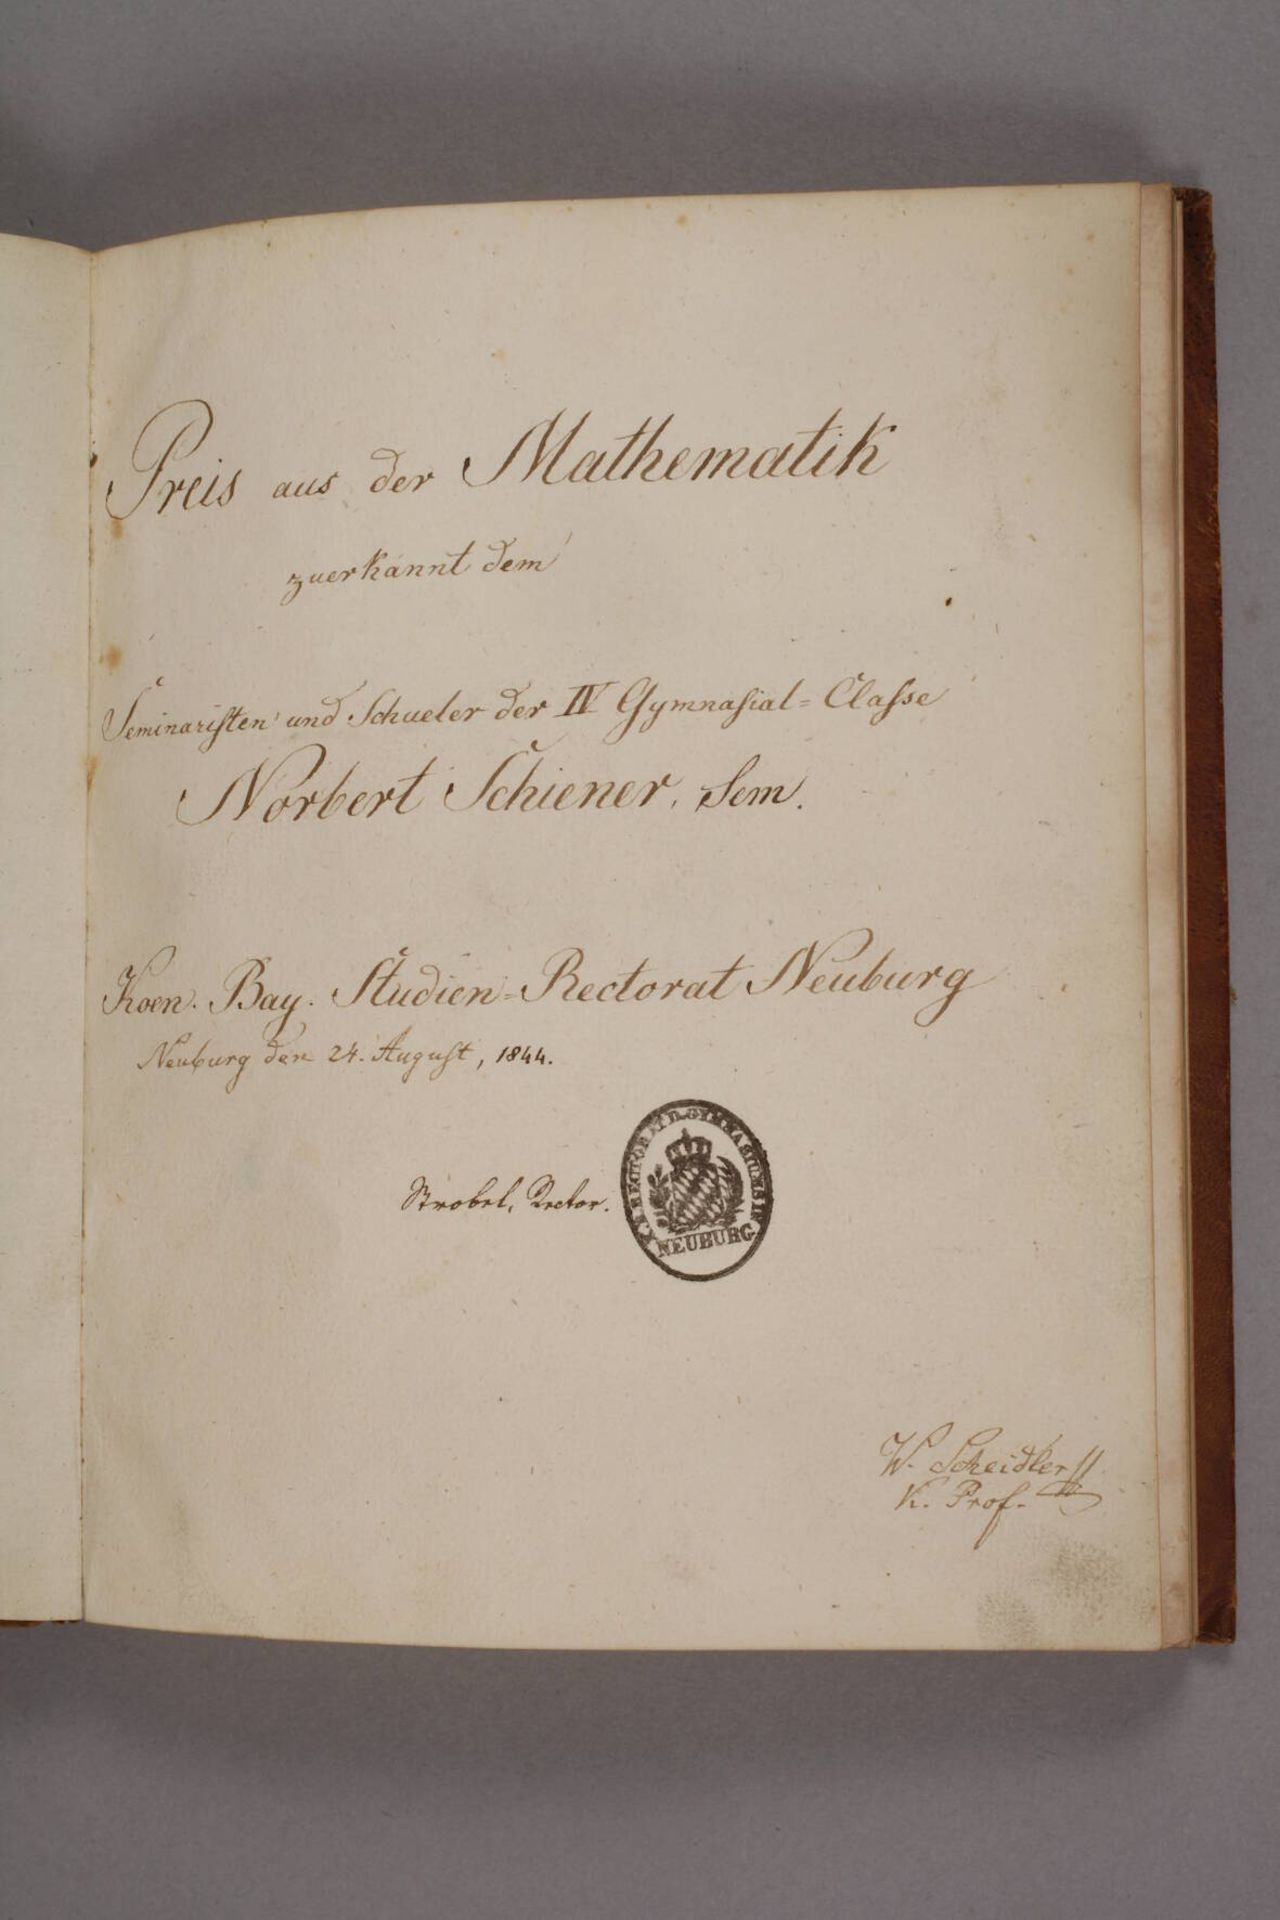 Preis aus der Mathematik
zuerkannt dem
Seminaristen und Schueler der IV Gymnasial=Classe
Norbert Schiener, Sem.
Koen. Bay. Studien=Rectorat Neuburg
Neuburg den 24. August, 1844.
Strobel, Rector.
K. B. RECTORAT D. GYMNASIUMS IN
NEUBURG
W. Scheidler
K. Prof.